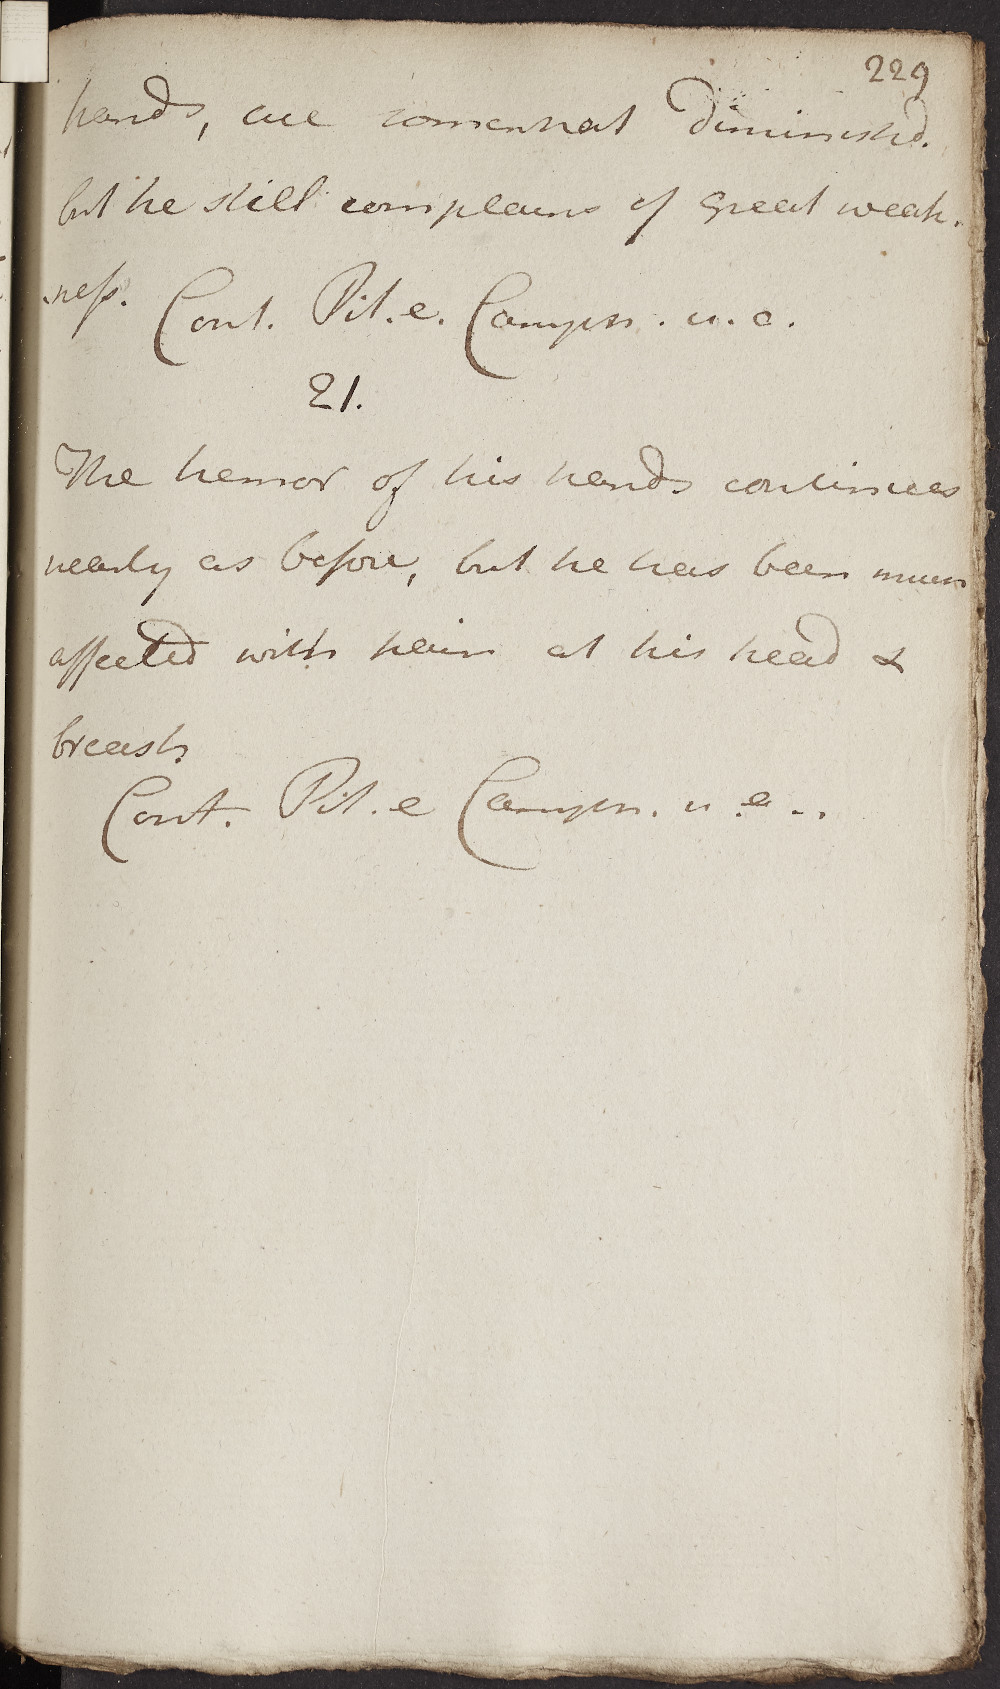 229
hands, are somewhat diminishd.
but he still complains of great weak-
-ness.
Cont. Pil. e. Camph. u. a.
21.
The tremor of his hands continues
nearly as before, but he has been much
affected with pain at his head &
breast
Cont. Pil. e Camph. u. a..